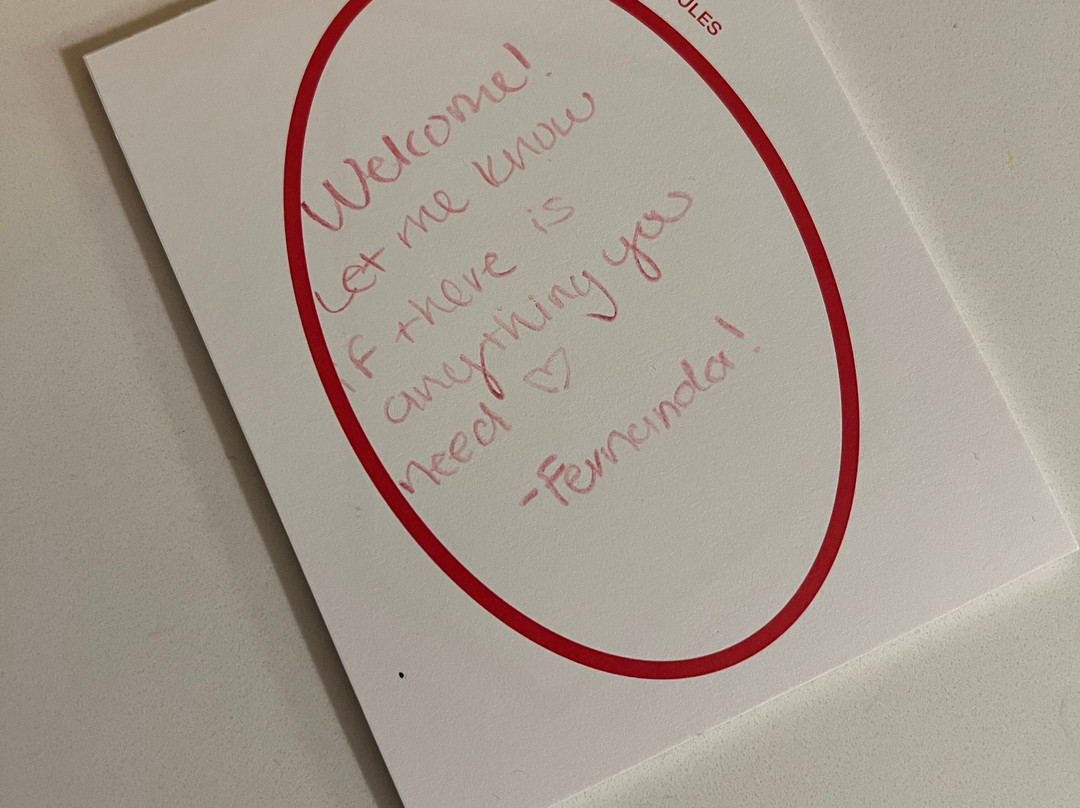 ULES
Welcome!
Let me know
if there is
anything you
need ♡
-Fernanda!